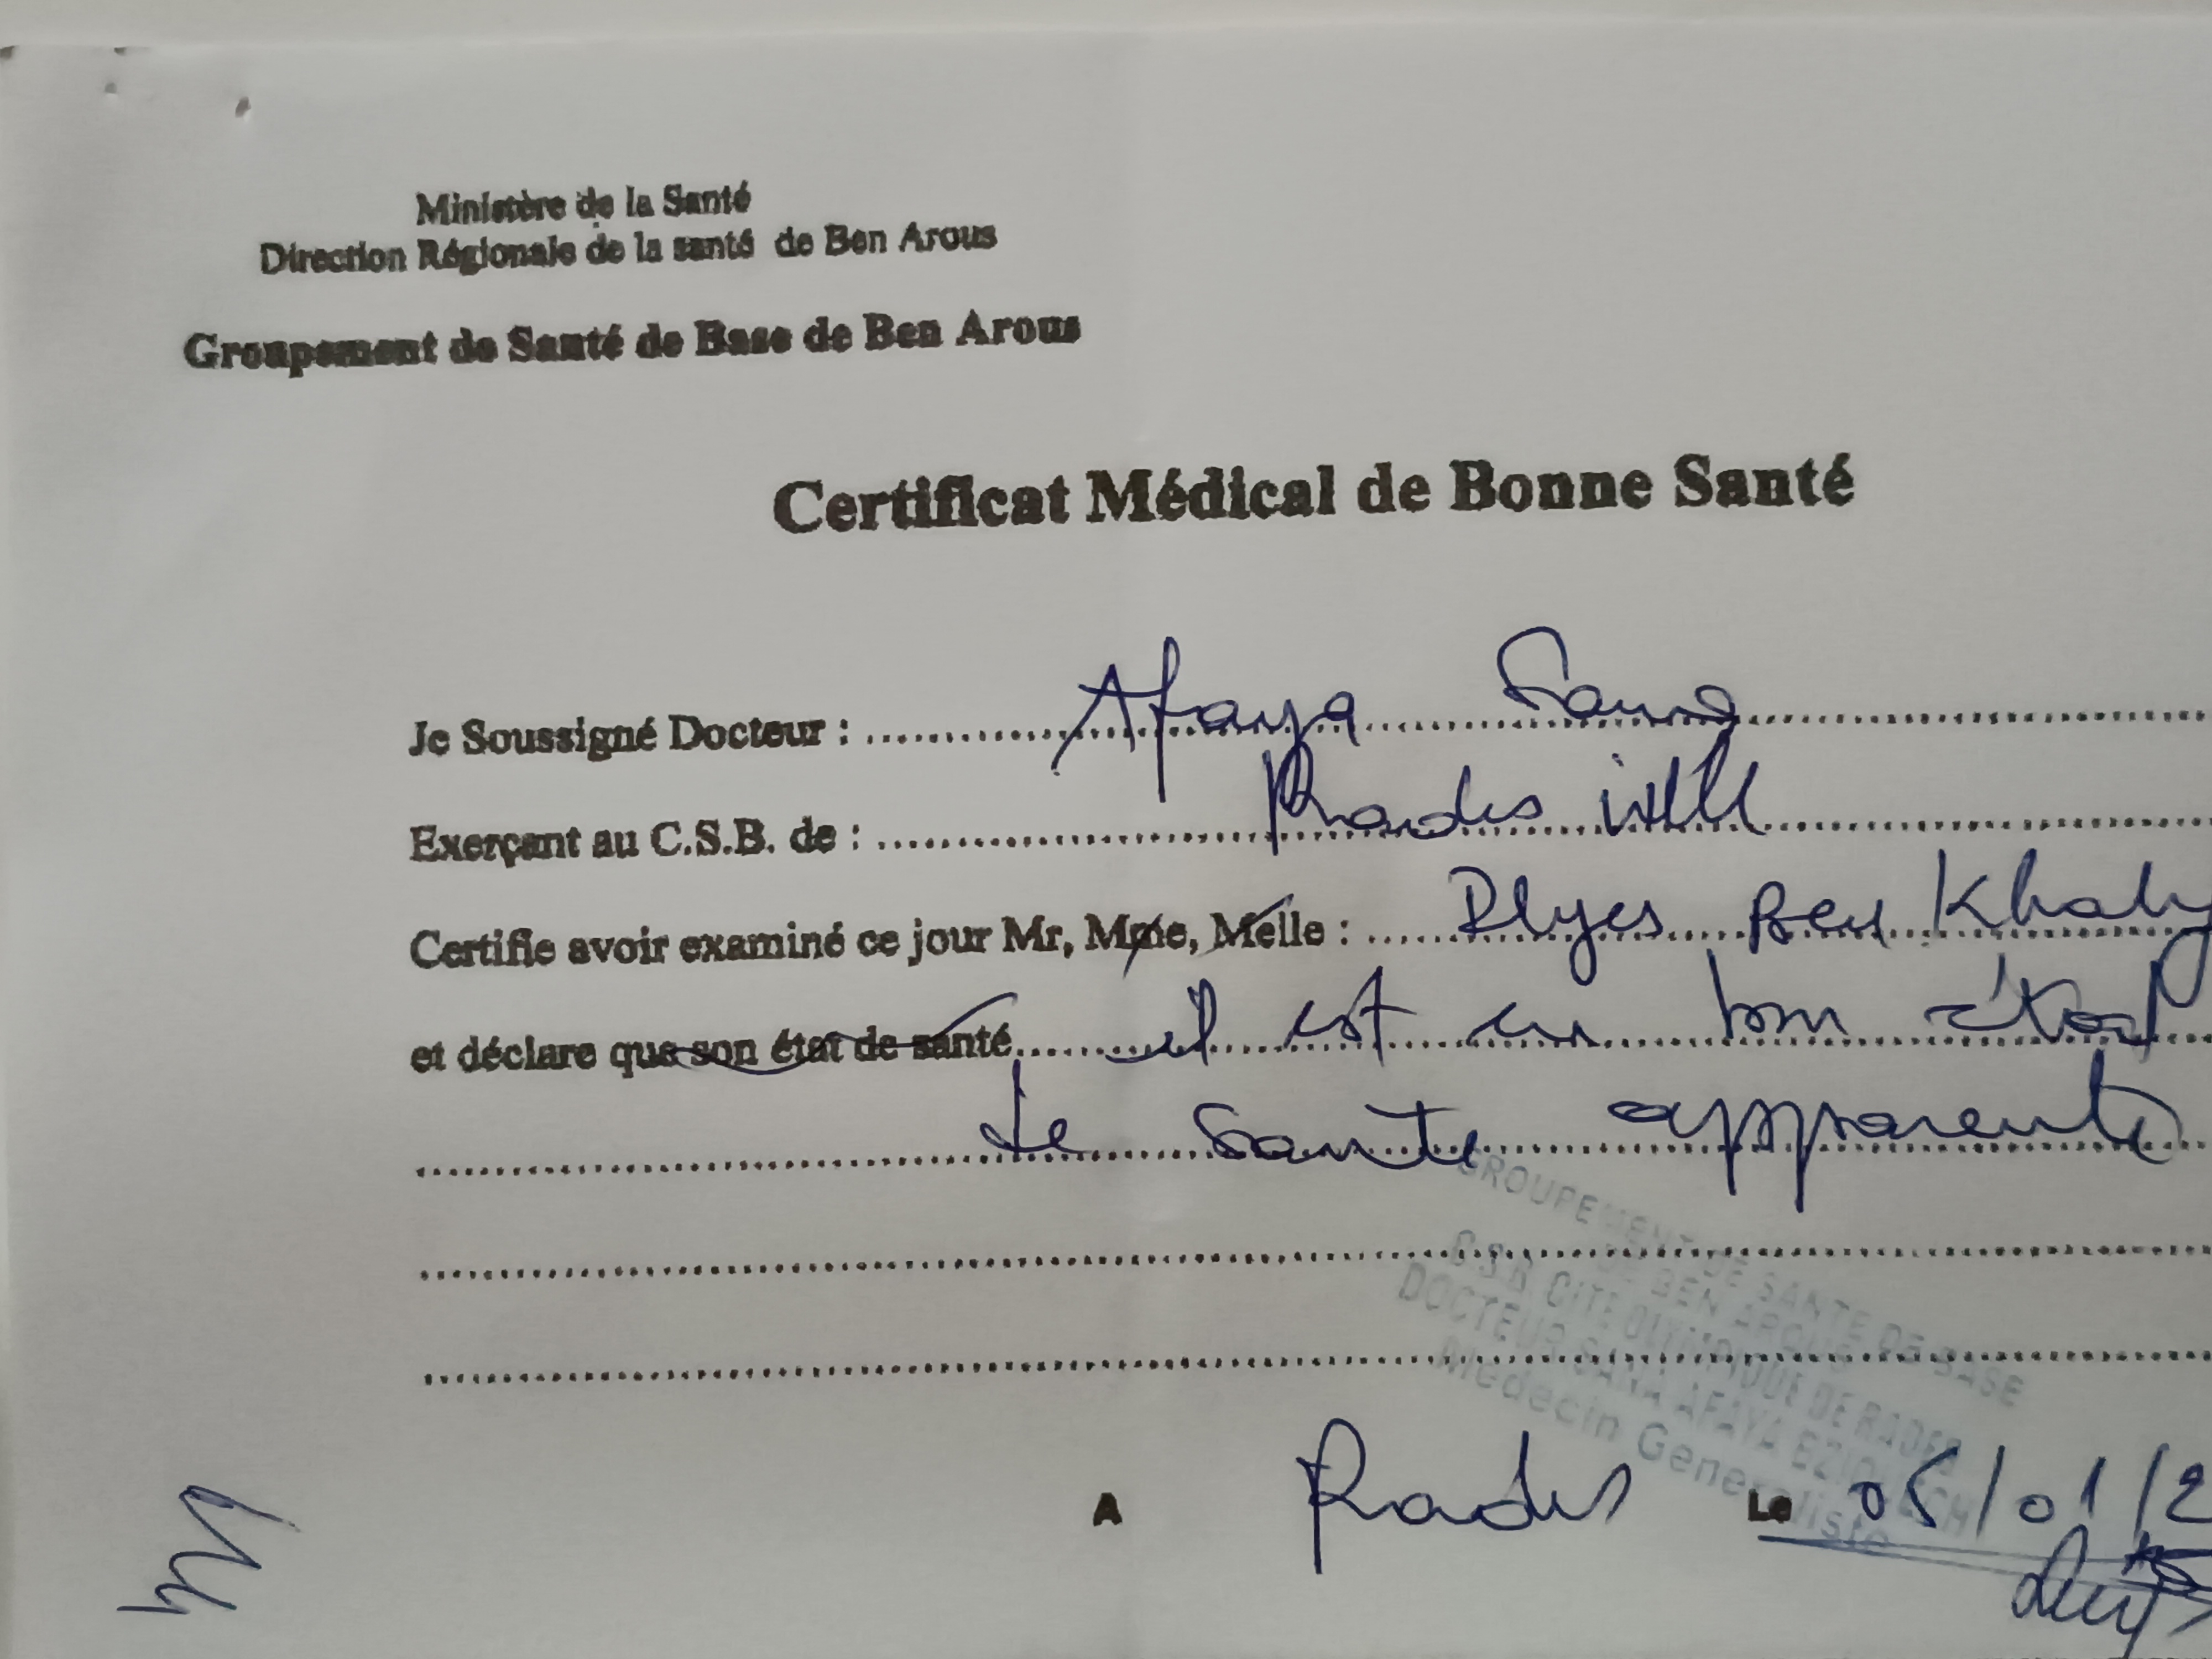 Ministère de la Santé
Direction Régionale de la santé de Ben Arous
Groupement de Santé de Base de Ben Arous
Certificat Médical de Bonne Santé
Je Soussigné Docteur : Afaya Sana
Exerçant au C.S.B. de : Rades
Certifie avoir examiné ce jour Mr, Mme, Melle : Ben
et déclare que son état de santé il est en bon état
de Sante apparente
GROUPEMENT DE SANTE DE BASE
DE BEN AROUS
C.S.B. CITE OLYMPIQUE DE RADES
DOCTEUR SANA AFAYA
Medecin Generaliste
A Rades Le 05/01/2